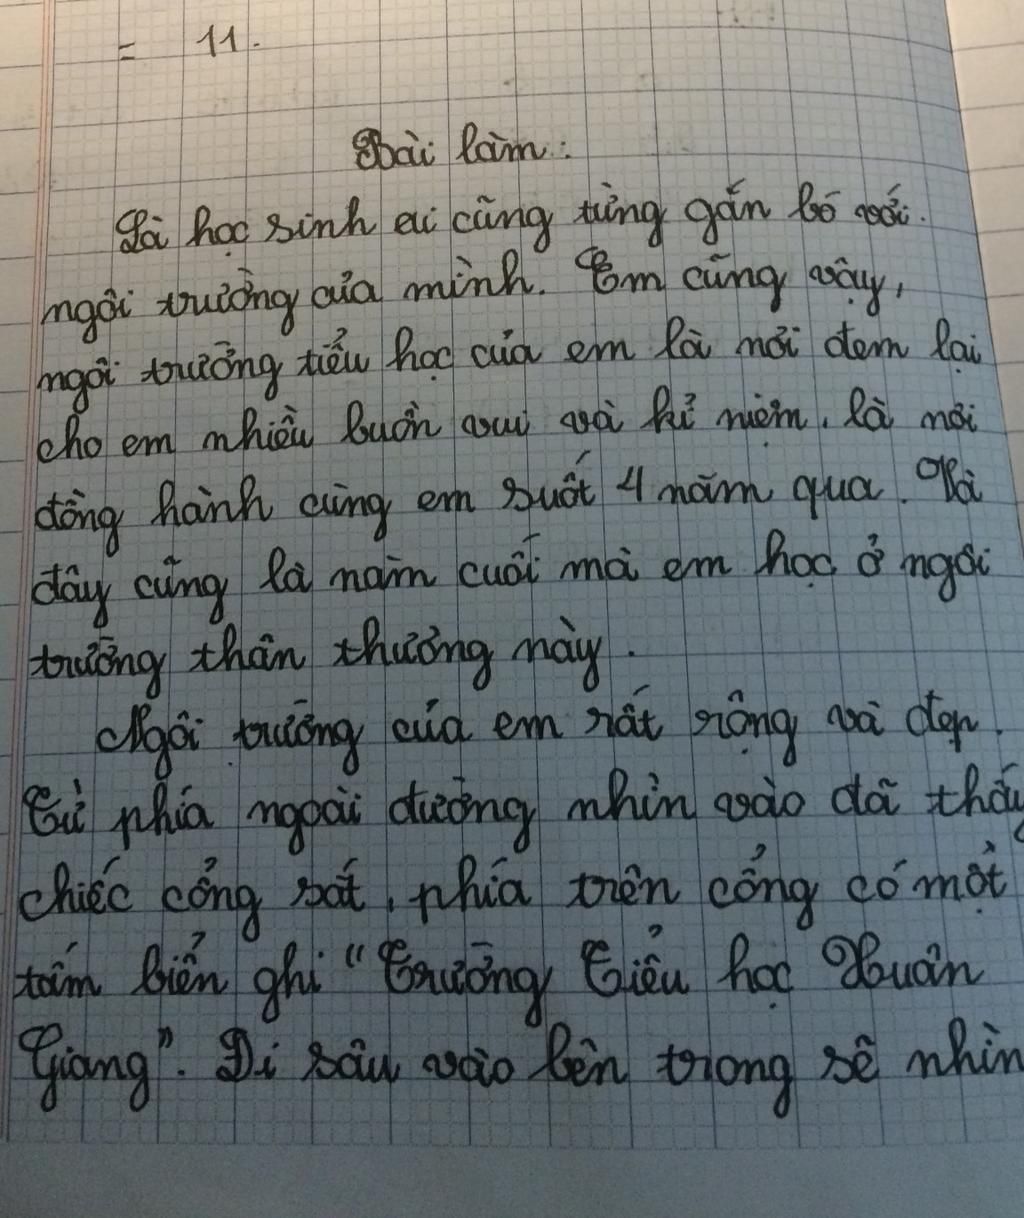 = 11.
Bài làm:
Là học sinh ai cũng từng gắn bó với.
ngôi trường của mình. Em cũng vậy,
ngôi trường tiểu học của em là nơi đem lại
cho em nhiều buồn vui và kỉ niệm, là nơi
đồng hành cùng em suốt 4 năm qua. Và
đây cũng là năm cuối mà em học ở ngôi
trường thân thương này.
Ngôi trường của em rất rộng và đẹp.
Từ phía ngoài đường nhìn vào đã thấy
chiếc cổng sắt, phía trên cổng có một
tấm biển ghi "Trường Tiểu học Xuân
Giang". Đi sâu vào bên trong sẽ nhìn